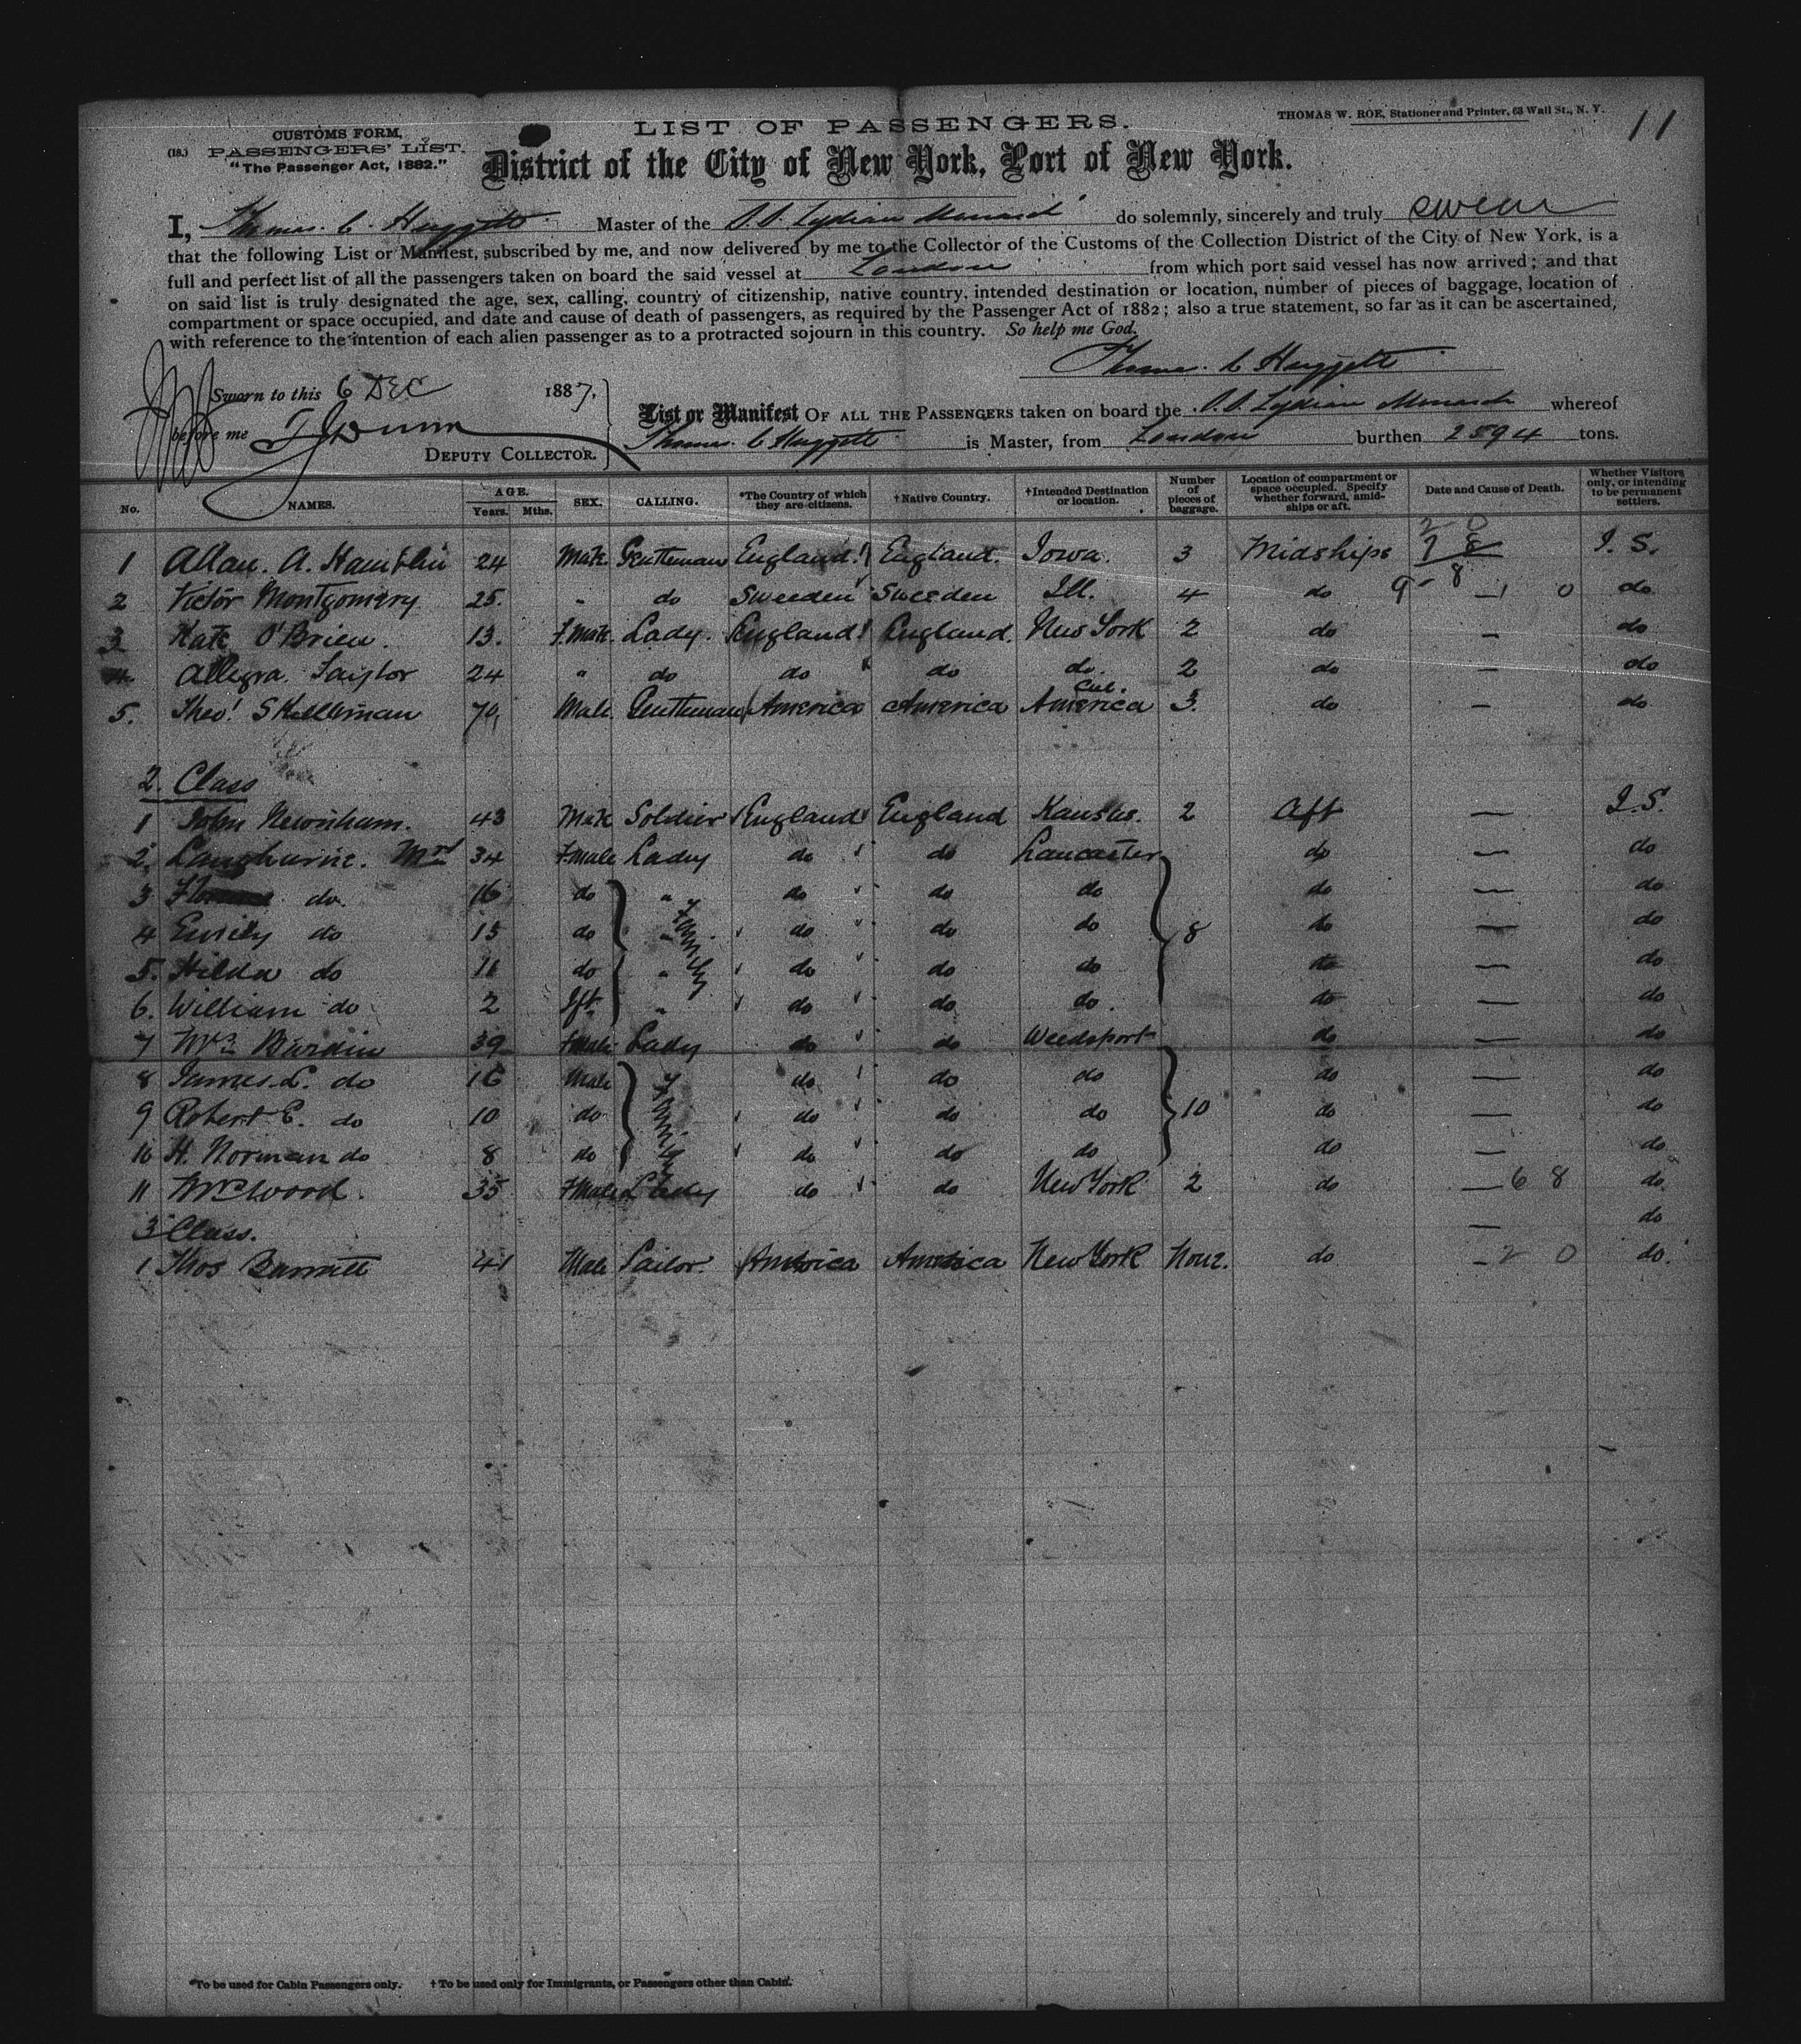 THOMAS W. ROE, Stationer and Printer, 63 Wall St., N. Y.
11
CUSTOMS FORM,
(18.) PASSENGERS' LIST.
"The Passenger Act, 1882."
LIST OF PASSENGERS.
District of the City of New York, Port of New York.
I, Thomas. C. Huggett Master of the S.S. Lydian Monarch do solemnly, sincerely and truly swear
that the following List or Manifest, subscribed by me, and now delivered by me to the Collector of the Customs of the Collection District of the City of New York, is a
full and perfect list of all the passengers taken on board the said vessel at London from which port said vessel has now arrived; and that
on said list is truly designated the age, sex, calling, country of citizenship, native country, intended destination or location, number of pieces of baggage, location of
compartment or space occupied, and date and cause of death of passengers, as required by the Passenger Act of 1882; also a true statement, so far as it can be ascertained,
with reference to the intention of each alien passenger as to a protracted sojourn in this country. So help me God.
Thomas. C Huggett
Sworn to this 6 DEC 1887,
before me
DEPUTY COLLECTOR.
List or Manifest OF ALL THE PASSENGERS taken on board the S.S. Lydian Monarch whereof
Thomas. C Huggett is Master, from London burthen 2594 tons.
No. NAMES. AGE. Years. Mths. SEX. CALLING. *The Country of which they are citizens. †Native Country. †Intended Destination or location. Number of pieces of baggage. Location of compartment or space occupied. Specify whether forward, amidships or aft. Date and Cause of Death. Whether Visitors only, or intending to be permanent settlers.
2 0
1 Allan. A. Hamblin 24 Male. Gentleman England. England. Iowa. 3 Midships 7 8 I. S.
2 Victor Montgomery 25. " do Sweeden Sweeden Ill. 4 do 9 - 8 — 1 0 do
3 Kate O'Brien. 13. F.male. Lady. England England. New York 2 do — do
4. Allegra Taylor 24 " do do do do. 2 do — do
Cul.
5. Theo! Skillman 70, Male. Gentleman America America America 3. do — do
2. Class
1 John Newnham. 43 Male Soldier England England Kansas. 2 Aft — I.S.
2. Langhurne. Mrs 34 F.male Lady do do Lancaster do — do
3 do. 16 do " do do do do — do
4 Emily do 15 do " Family do do do 8 do — do
5. Hilda do 11 do " do do do do — do
6. William do 2 Ift. " do do do. do — do
7 Mrs Burdin 39 F.male Lady do do Weedsport do — do
8 James. L. do 16 Male Family do do do do — do
9 Robert E. do 10 do do do do 10 do — do
10 H. Norman do 8 do do do do do — do
11 Mrs Wood. 35 F.Male Lady do do New York 2 do — 6 8 do
3 Class. — do
1 Thos Burnitt 41 Male Sailor. America America New York None. do — 2 0 do.
*To be used for Cabin Passengers only. † To be used only for Immigrants, or Passengers other than Cabin.